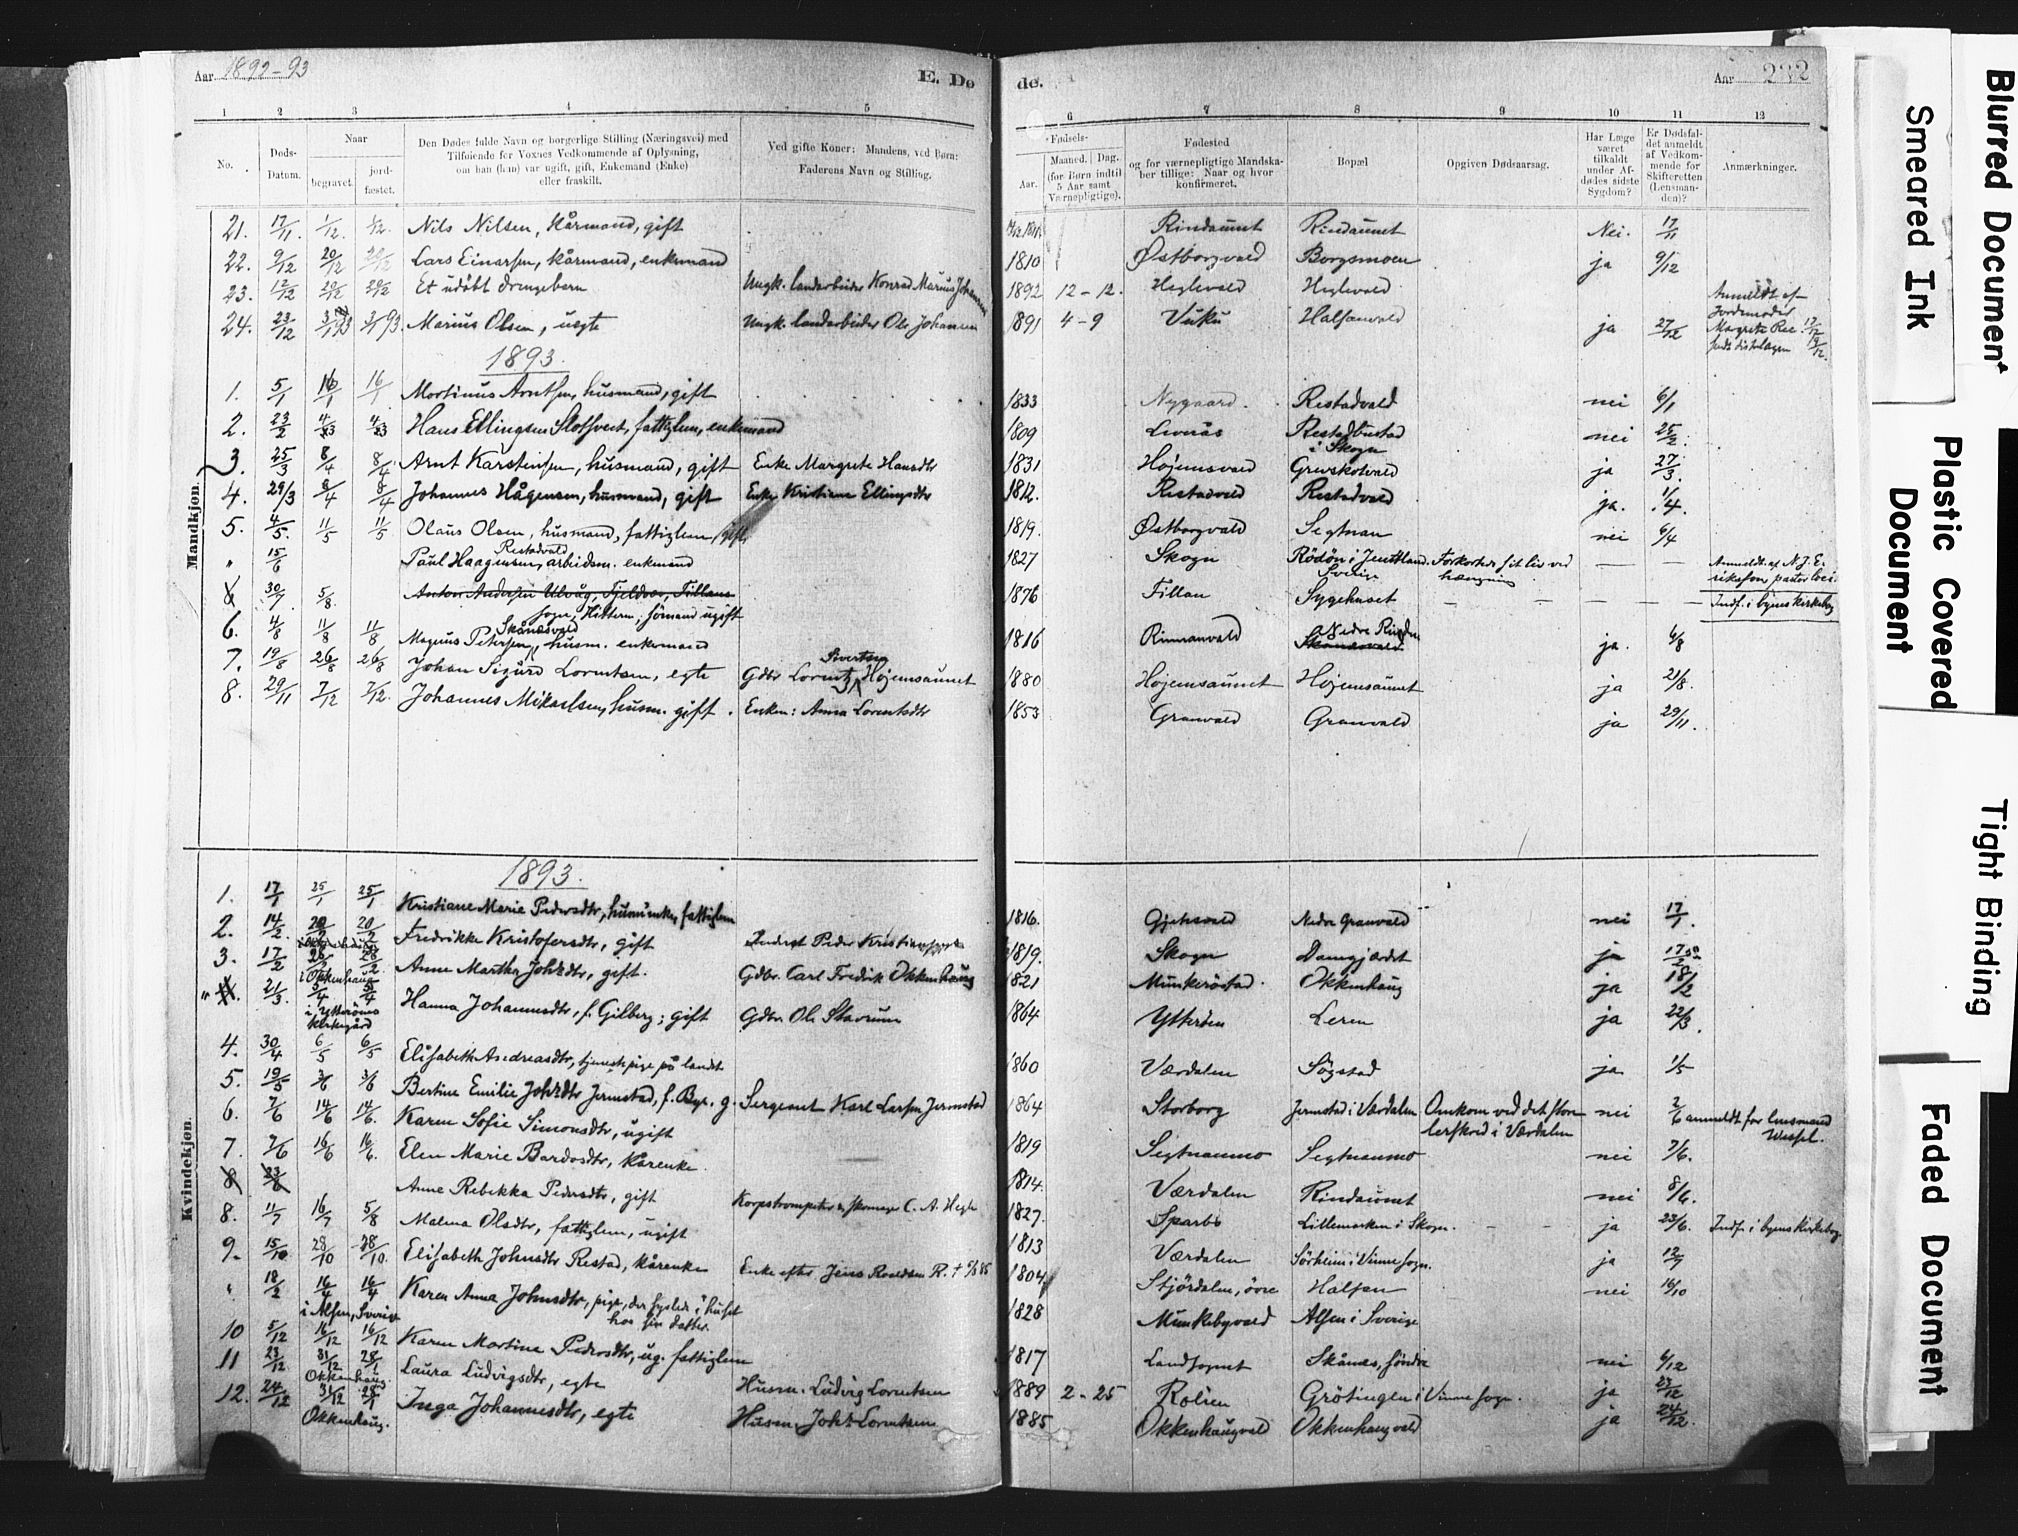 Aar 1892-93
E. Dø
de.
Aar 222
1 2 3 4 5
6 7 8 9 10 11 12
No.
Døds-
Datum.
Naar
begravet.
jord-
fæstet.
Den Dødes fulde Navn og borgerlige Stilling (Næringsvei) med
Tilføiende for Voxnes Vedkommende af Oplysning,
om han (hun) var ugift, gift, Enkemand (Enke)
eller fraskilt.
Ved gifte Koner: Mandens, ved Børn:
Faderens Navn og Stilling.
Fødsels-
Aar.
Maaned. Dag.
(for Børn indtil
5 Aar samt
Værnepligtige).
Fødested
og for værnepligtige Mandska-
ber tillige: Naar og hvor
konfirmeret.
Bopæl
Opgiven Dødsaarsag.
Har Læge
været
tilkaldt
under Af-
dødes sidste
Sygdom?
Er Dødsfal-
det anmeldt
af Vedkom-
mende for
Skifteretten
(Lensman-
den)?
Anmærkninger.
Mandkjøn.
21. 17/11. 1/12. 1/12. Nils Nilsen, kårmand, gift Rindaunet Rindaunet Nei. 17/11
22. 9/12 20/12 20/12 Lars Einarsen, kårmand, enkemand 1810 Østborgvald Borgsmoen ja 9/12
23. 12/12 20/12 20/12 Et udøbt drengebarn Ungk. landarbeider Konrad Marius Johansen 1892 12-12. Heglevald Heglevald Anmeldt af
Jordemoder
24. 23/12 3/1 93 3/1 93. Marius Olsen, uegte Ungk. landarbeider Ole Johansen 1891 4-9 Vuku Halsanvald ja 27/12 Magrete 17/12
19/12.
1893.
1. 5/1 16/1 16/1 Mortinus Arntsen, husmand, gift 1833 Nygaard. Restadvald nei 6/1
2. 23/2 4/3 4/3 Hans Ellingsen Slotsveet, fattiglem, enkemand 1809 Leverås Restadbustad
i Skogn nei 25/2.
3. 25/3 8/4 8/4 Arnt Karstensen, husmand, gift Enke Margrete Hansdtr 1831 Højemsvald Grevskotvald ja 27/3.
4. 29/3 8/4 8/4 Johannes Hågensen, husmand, gift Enke Kristiane Ellingsdtr 1812. Restadvald Restadvald ja. 1/4.
5. 4/5. 11/5 11/5 Olaus Olsen, husmand, fattiglem, gift 1819. Østborgvald Segtnan nei 6/4
" 15/6 Restadvald
Paul Haagensen, arbeidsm. enkemand 1827 Skogn Rödön i Jemtland Sverige Forkortede sit liv ved
hængning — — Anmeldt af N. J. E-
riksson, pastor loci.
8 30/7. 5/8. Anton Andersen Ulvåg, Fjeldvær, Tillans
sogn, Hittern; sömand ugift 1876 Tillan Sygehuset — — — — Indf. i byens kirkebog
6. 4/8 11/8 11/8 Skånesvald
Magnus Petersen, husm. enkemand 1816 Rinnanvald Nedre Rinnan
Skånesvald ja. 4/8
7. 19/8 26/8 26/8 Johan Sigurd Lorentsen, egte Gdbr Lorentz Sivertsen Højemsaunet 1880 Højemsaunet Højemsaunet ja 21/8.
8. 29/11 7/12 7/12. Johannes Mikaelsen, husm. gift. Enken: Anna Lorentsdtr 1853 Granvald Granvald ja 29/11.
Kvindekjøn.
1893.
1. 17/1 25/1 25/1 Kristiane Marie Pedersdtr, husm.enke, fattiglem 1816. Gjetsvald Nedre Granvald nei 17/1.
2. 14/2. 20/2 20/2 Fredrikke Kristofersdtr, gift Inderst Peder Kristiansen 1819. Skogn Damgjærdet ja 17/2
3. 17/2 28/2 28/2 Anne Martha Johsdtr, gift. Gdbr. Carl Fredrik Okkenhaug 1821 Munkerøstad. Okkenhaug ja 18/2
i Okkenhaug
" 4. 21/3. 5/4 5/4 Hanna Johannesdtr, f. Gilberg; gift Gdbr. Ole Stavrum 1864 Ytterøen Leren ja 22/3.
i Ytterøens
kirkegård
4. 30/4 6/5 6/5 Elisabeth Andreasdtr, tjenestepige på landet 1860 Værdalen Søgstad ja 1/5
5. 19/5 3/6 3/6 Bertine Emilie Johsdtr Jermstad, f. Bye. g. Sergeant Karl Larsen Jermstad 1864 Storborg Jermstad i Værdalen Omkom ved det store
lerskred i Værdalen nei 2/6 anmeldt for lensmand
Wessel.
6. 7/6 14/6 14/6. Karen Sofie Simonsdtr, ugift 1819 Segtnanmo Segtnanmo nei 7/6.
7. 7/6 16/6 16/6. Elen Marie Bardosdtr, kårenke. 1814. Værdalen Rindaunet nei 8/6.
8 23/6 Anne Rebekka Pedersdtr, gift Korpstrompeter & skomager C. A. Hegle 1827. Sparbo Lillemarken i Skogn. ja 23/6. Indf. i byens kirkebog.
8. 11/7 16/7 5/8 Malena Olsdtr, fattiglem, ugift 1813 Værdalen Sörheim i Vinne sogn. ja 12/7
9. 15/10 28/10 28/10. Elisabeth Johnsdtr Restad, kårenke Enke efter Jens Roaldsen R. † 1804 Stjördalen, övre Halsen nei 16/10
" 18/2 16/4 16/4 Karen Anna Johnsdtr, pige, der sysler i huset
hos sin datter. 1828 Munkebyvald Alsen i Sverige
i Alsen, Sverige
10 5/12 16/12 16/12 Karen Martine Pedersdtr, ug. fattiglem 1817 Landsognet Skånes, søndre nei 6/12
11 23/12 31/12 28/1 Laura Ludvigsdtr, egte Husm. Ludvig Lorentsen 1889 2-25 Rolien Grötingen i Vinne sogn. ja 23/12
Okkenhaug.
12. 24/12 31/12 28/1 Inga Johannesdtr, egte Husm. Johs Lorentsen 1885 Okkenhaugvald Okkenhaugvald ja 24/12.
Okkenhaug.
Blurred Document
Smeared Ink
Plastic Covered
Document
Tight Binding
Faded Document